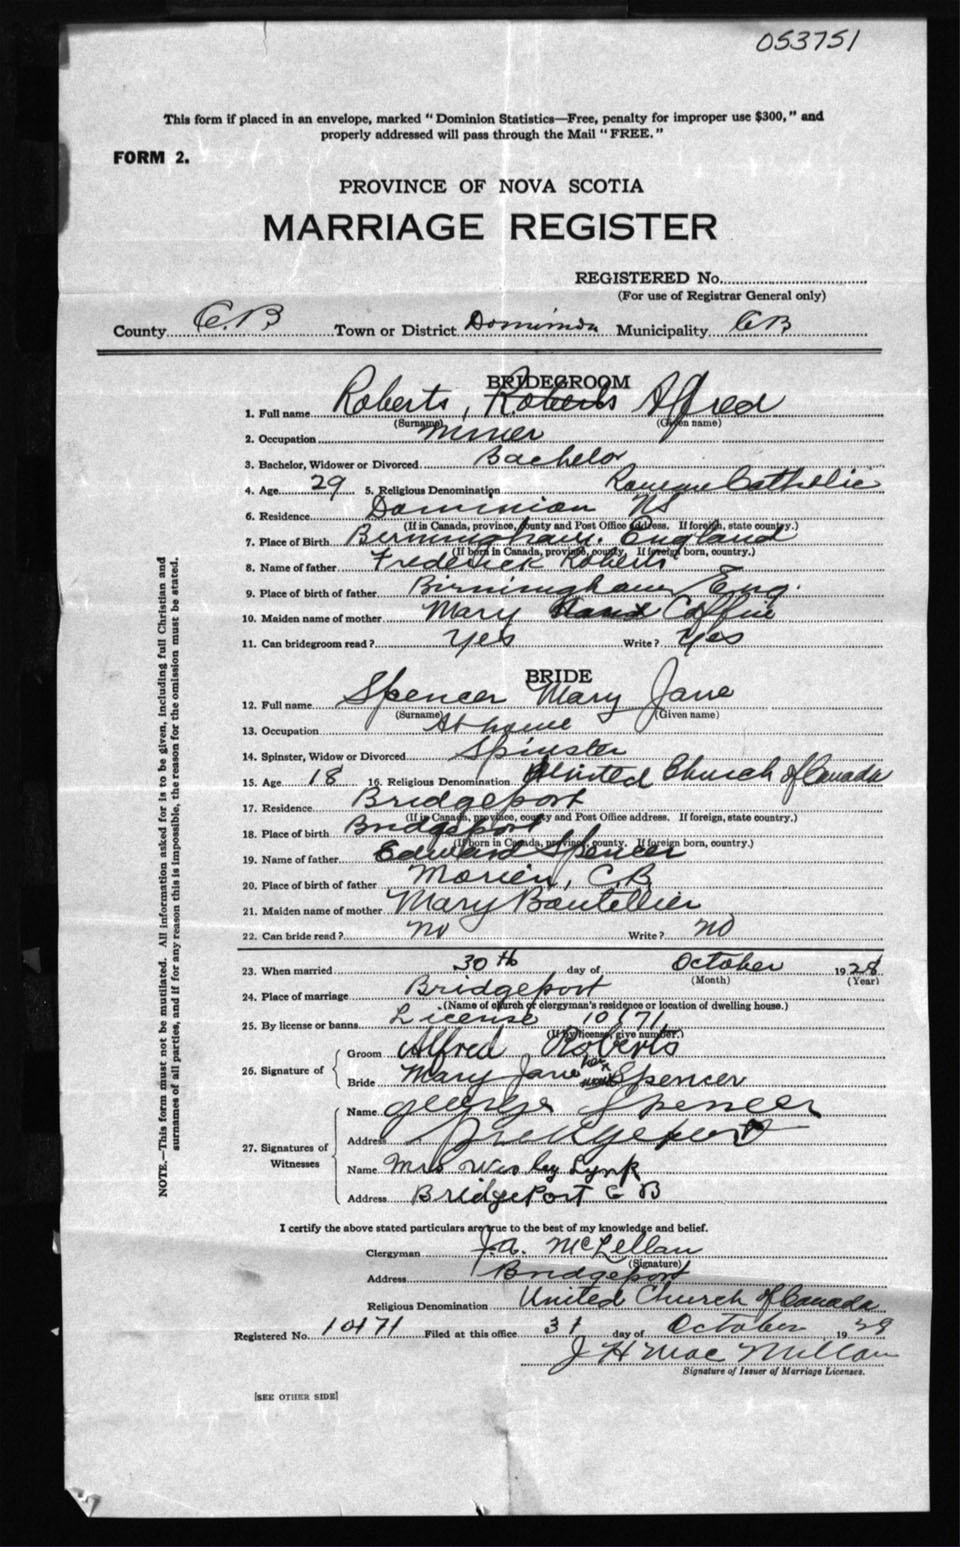 053751
This form if placed in an envelope, marked "Dominion Statistics—Free, penalty for improper use $300," and
properly addressed will pass through the Mail "FREE."
FORM 2.
PROVINCE OF NOVA SCOTIA
MARRIAGE REGISTER
REGISTERED No.
(For use of Registrar General only)
County C.B Town or District Dominion Municipality CB
BRIDEGROOM
1. Full name Roberts, Roberts Alfred
(Surname) (Given name)
2. Occupation Miner
3. Bachelor, Widower or Divorced Bachelor
4. Age 29 5. Religious Denomination Roman Catholic
6. Residence Dominion NS
(If in Canada, province, county and Post Office address. If foreign, state country.)
7. Place of Birth Birmingham. England
(If born in Canada, province, county, If foreign born, country.)
8. Name of father Frederick Roberts
9. Place of birth of father Birmingham Eng.
10. Maiden name of mother Mary
11. Can bridegroom read? Yes Write? Yes
BRIDE
12. Full name Spencer Mary Jane
(Surname) (Given name)
13. Occupation At home
14. Spinster, Widow or Divorced Spinster
15. Age 18 16. Religious Denomination United Church of Canada
17. Residence Bridgeport
(If in Canada, province, county and Post Office address. If foreign, state country.)
18. Place of birth Bridgeport
(If born in Canada, province, county. If foreign born, country.)
19. Name of father Edward Spencer
20. Place of birth of father Morien, C.B
21. Maiden name of mother Mary Boutellier
22. Can bride read? No Write? No
23. When married 30th day of October 1928
(Month) (Year)
24. Place of marriage Bridgeport
(Name of church or clergyman's residence or location of dwelling house.)
25. By license or banns License 10171
(If by license, give number.)
26. Signature of
Groom Alfred Roberts
Bride Mary Jane her x mark Spencer
27. Signatures of Witnesses
Name George Spencer
Address Bridgeport
Name Mrs Wesley Lynk
Address BridgePort C B
I certify the above stated particulars are true to the best of my knowledge and belief.
Clergyman J.A. McLellan
(Signature)
Address Bridgeport
Religious Denomination United Church of Canada
Registered No. 10171 Filed at this office 31 day of October, 19
J H MacMillan
Signature of Issuer of Marriage Licenses.
[SEE OTHER SIDE]
NOTE.—This form must not be mutilated. All information asked for is to be given, including full Christian and
surnames of all parties, and if for any reason this is impossible, the reason for the omission must be stated.